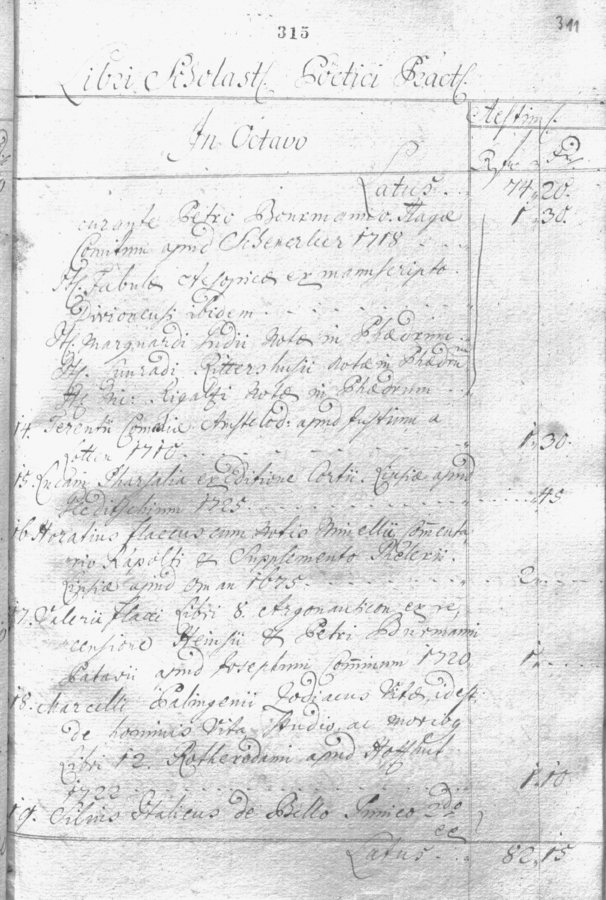 315
311
Libri Scholast. Poetici Pract.
Aestim.
In Octavo
Latus. 74. 20.
curante Petro Bourmanno. Hagae 1. 30.
Comitum apud Scheurleer 1718
It. Fabulae Aesopicae ex manuscripto
Divionensi ibidem
It. Marquardi Gudii Notae in Phaedrum
It. Cunradi Rittershusii Notae in Phaedrum
It. Nic: Rigaltii Notae in Phaedrum
14. Terentii Comoediae Amstelod: apud Justum a
1. 30.
1710
15. Lucani Pharsalia ex editione Cortii. Lipsiae apud
Gleditschium 1725 45
16. Horatius flaccus cum Notis Minellii, Com̄enta
rio Rapolti & Supplemento
Lipsiae apud 1675 2
17. Valerii flacci Libri 8. Argonauticon ex re,
censione Heinsii & Petri Burmanni
Patavii apud Josephum Com̄inum 1720. 1
18. Marcelli Palingenii Zodiacus Vitae, idest:
de hominis Vita, Studio, ac moribq
Libri 12. Rotherodami apud Hoffhut
1722 1. 10
19. Silius Italicus de Bello Punico
Latus. 82. 15